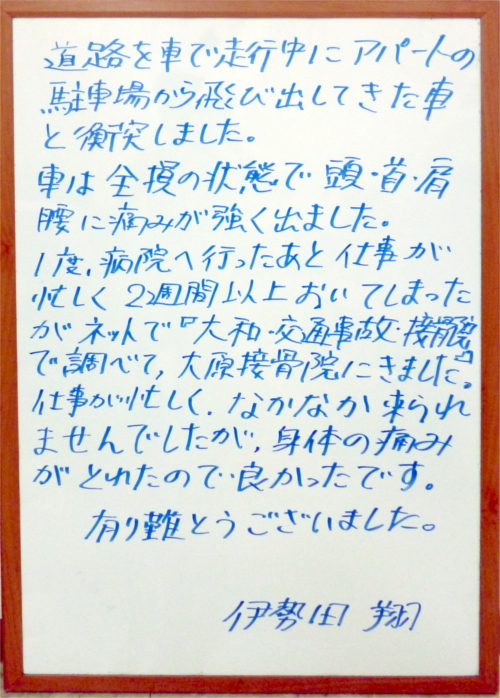 道路を車で走行中にアパートの
駐車場から飛び出してきた車
と衝突しました。
車は全損の状態で頭・首・肩
腰に痛みが強く出ました。
1度、病院へ行ったあと仕事が
忙しく2週間以上おいてしまった
がネットで『大和・交通事故・接骨院』
で調べて、大原接骨院にきました。
仕事が忙しく、なかなか来られ
ませんでしたが、身体の痛み
がとれたので良かったです。
有り難とうございました。
伊勢田 翔